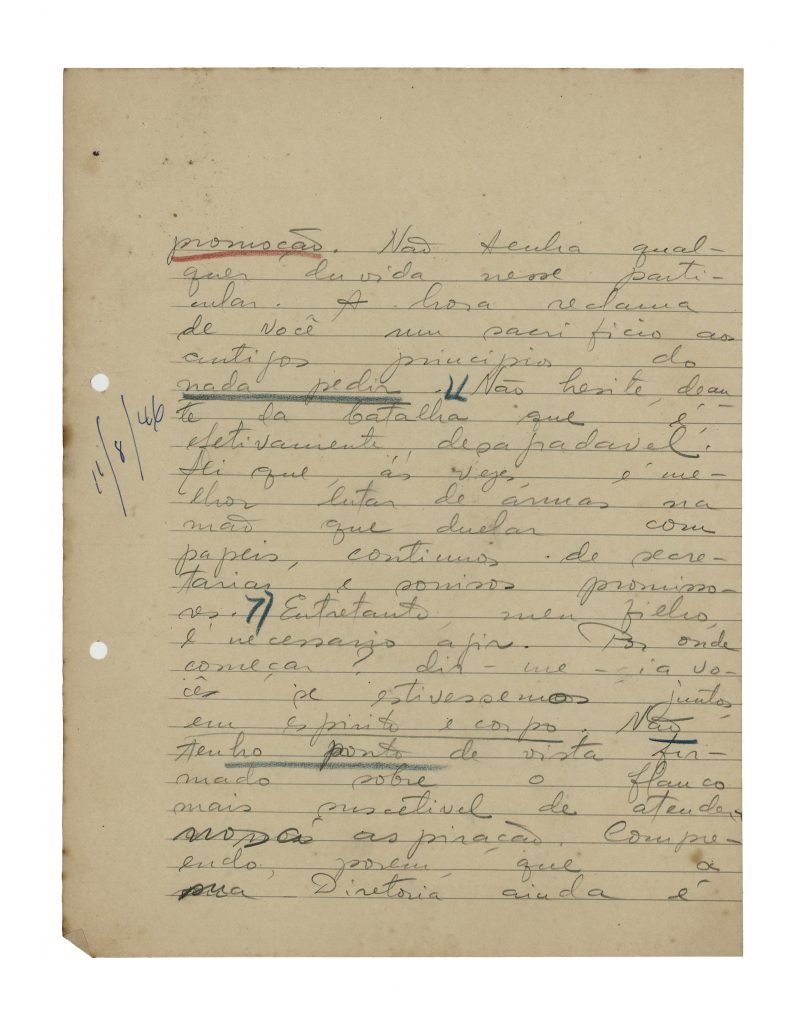 promoção. Não tenha qual-
quer duvida nesse parti-
cular. A hora reclama
de você um sacrificio aos
antigos principios do
nada pedir. Não hesite, dean-
te da batalha que é,
efetivamente, desagradavel.
Ali que, ás vezes, é me-
lhor lutar de armas na
mão que duelar com
papeis, continuos de secre-
tarias e sorrisos promisso-
res. Entretanto, meu filho,
é necessario agir. Por onde
começar? dir-me-ia vo-
cês se estivessemos juntos
em espirito e corpo. Não
tenho ponto de vista fir-
mado sobre o flanco
mais suscetivel de atender
nossa aspiração. Compre-
endo, porem, que a
sua Diretoria ainda é
11/8/46